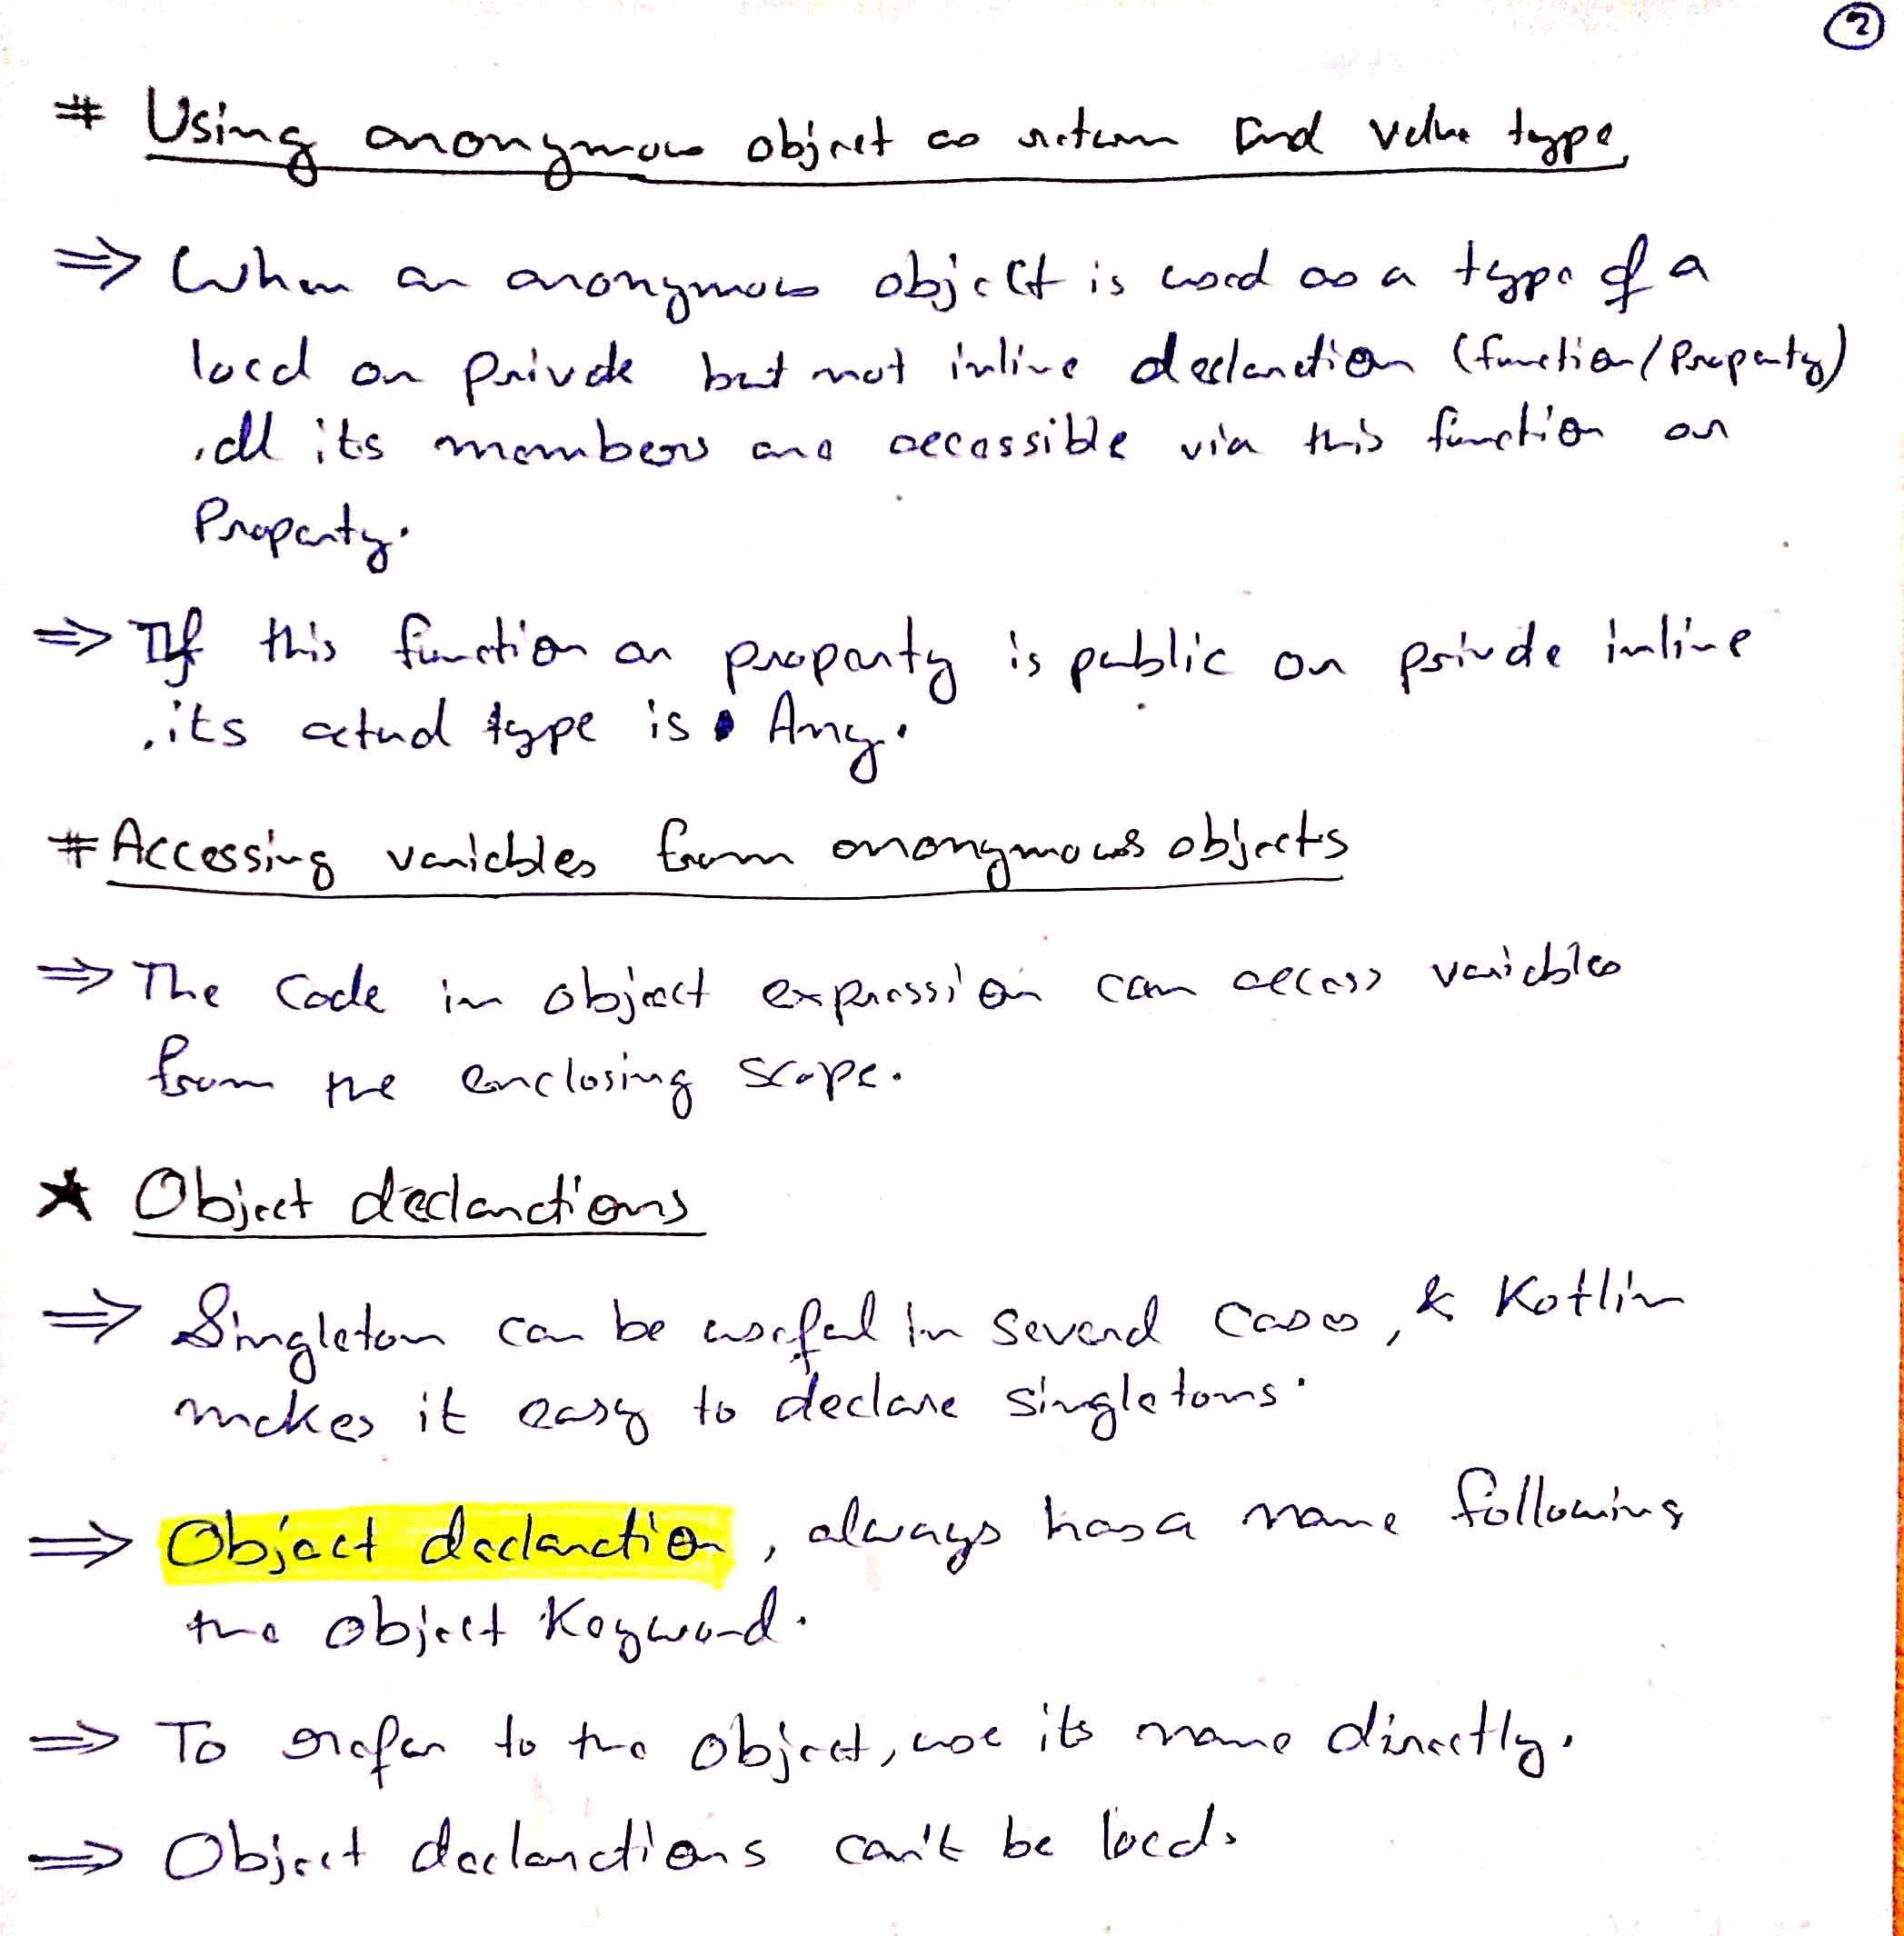 2
# Using anonymous object as return and value type
⇒ When an anonymous object is used as a type of a
local or private but not inline declaration (function/Property)
, all its members are accessible via this function or
Property.
⇒ If this function or property is public or private inline
, its actual type is Any.
# Accessing variables from anonymous objects
⇒ The Code in object expression can access variables
from the enclosing scope.
★ Object declarations
⇒ Singleton can be useful in several cases, & Kotlin
makes it easy to declare singletons.
⇒ Object declaration, always has a name following
the object Keyword.
⇒ To refer to the object, use its name directly.
⇒ Object declarations can't be local.